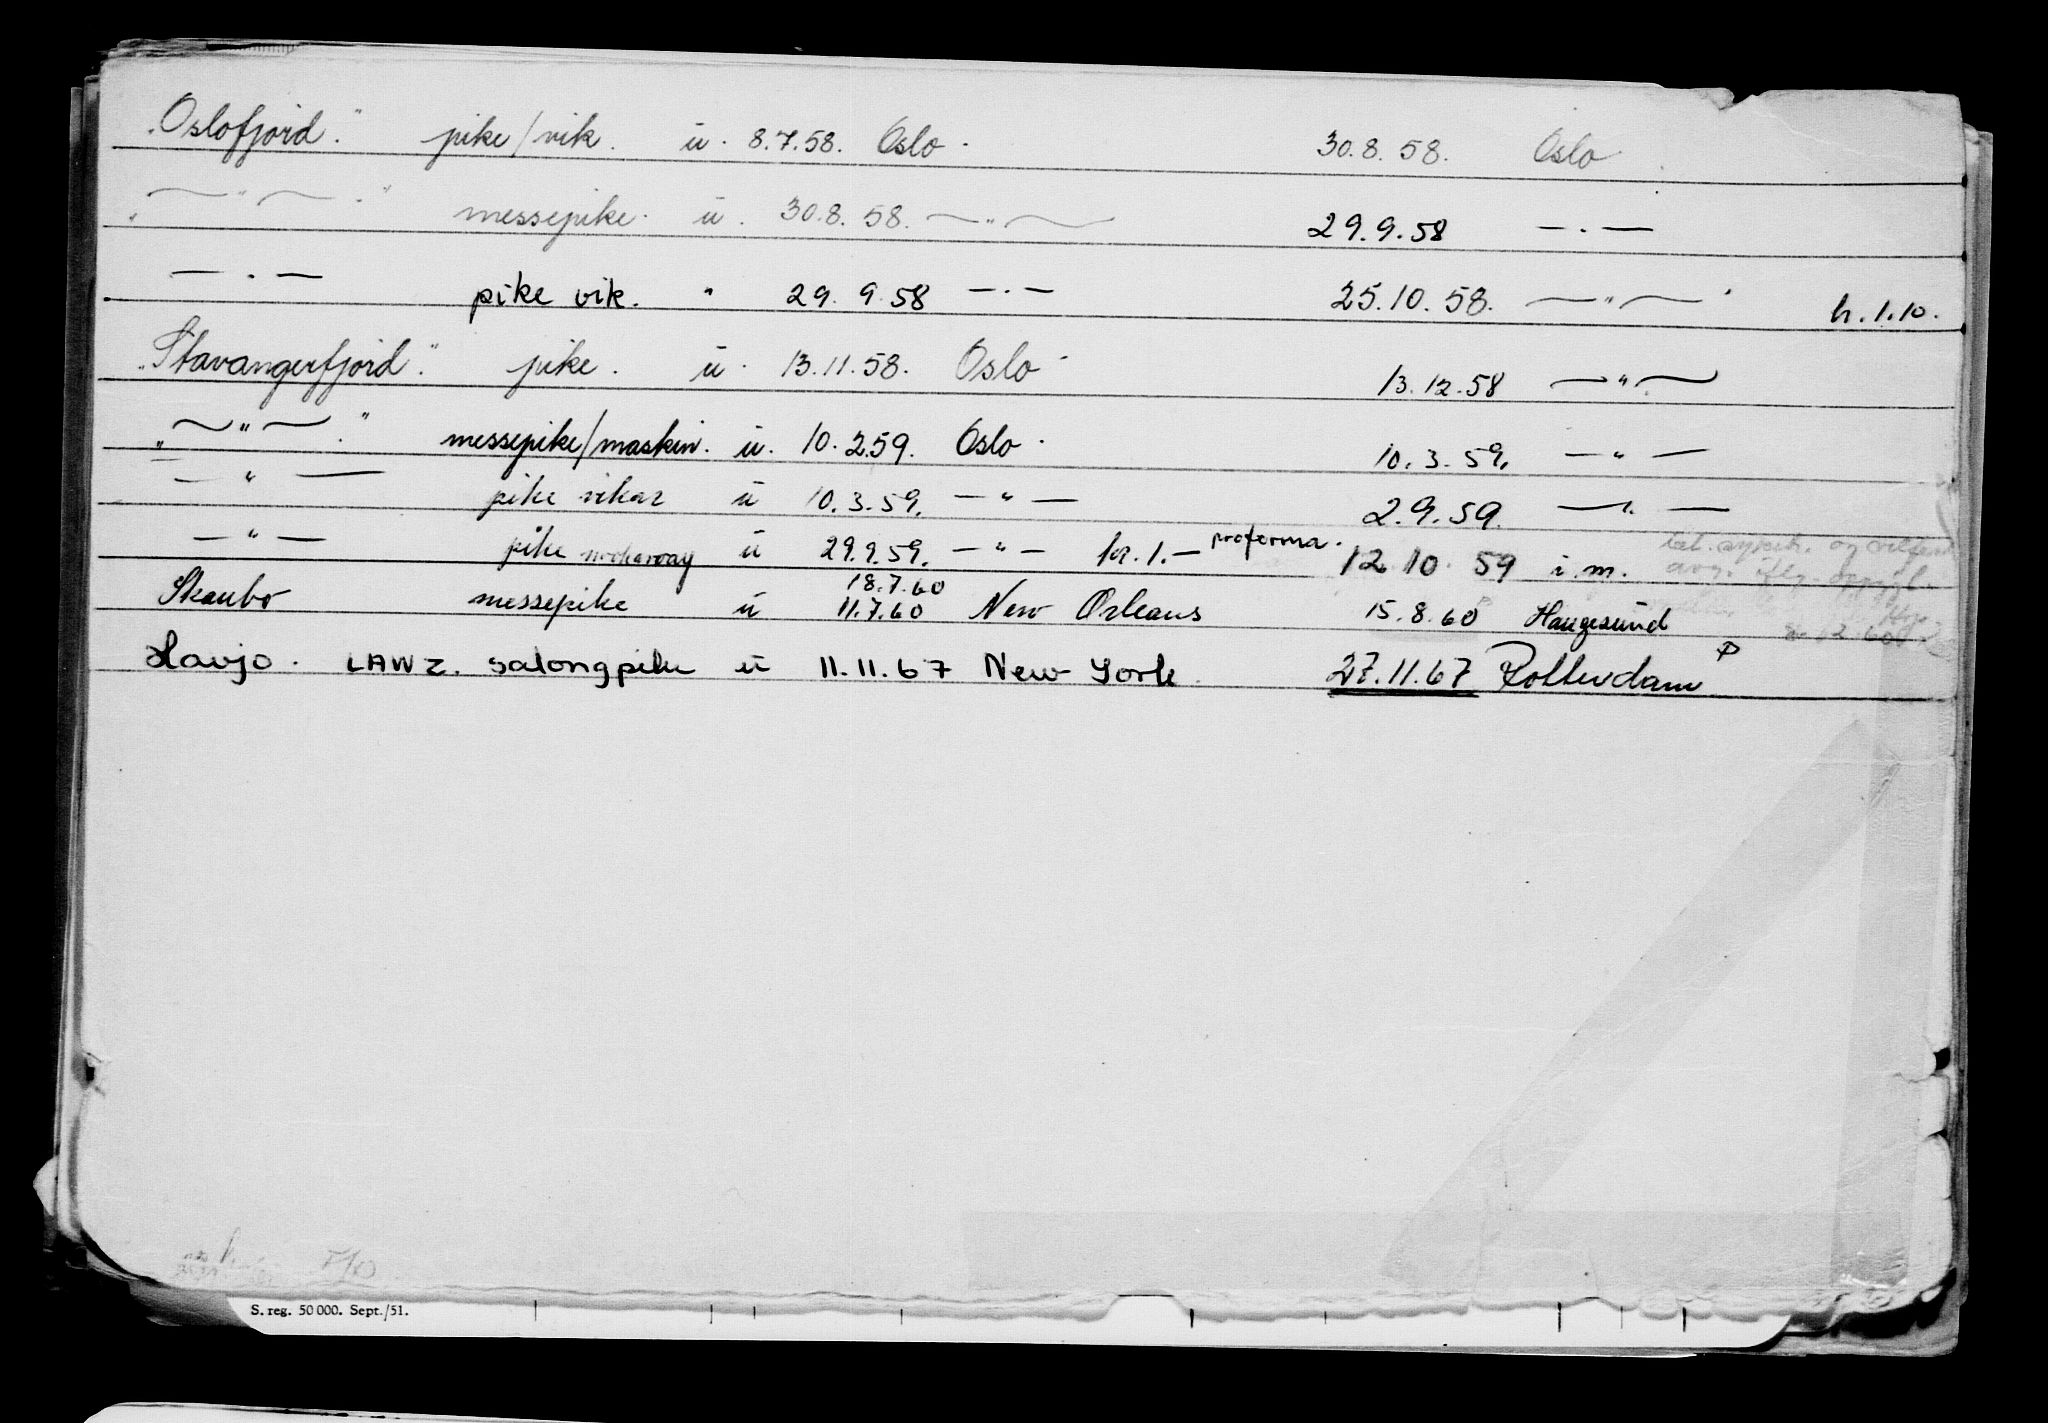 "Oslofjord." pike/vik. ü. 8.7.58. Oslo. 30.8.58. Oslo.
" — " — ." messepike. ü. 30.8.58. — " — 29.9.58 — . —
— . — pike vik. " 29.9.58 — . — 25.10.58. — " — h. 1.10.
"Stavangerfjord". pike. ü. 13.11.58. Oslo 13.12.58 — " —
" — " — ." messepike/maskin. ü. 10.2.59. Oslo. 10.3.59. — " —
— " — pike vikar ü 10.3.59. — " — 2.9.59. — " —
proforma.
— " — pike ü 29.9.59. — " — kr. 1.— 12.10.59 i.m.
18.7.60
Skaubo messepike ü 11.7.60 New Orleans 15.8.60 P Haugesund
Havjo. LAWZ. salongpike ü 11.11.67 New York 27.11.67 Rotterdam P
S. reg. 50 000. Sept./51.